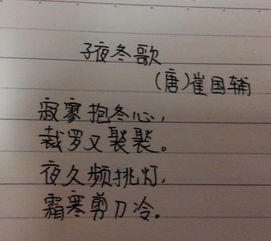 子夜冬歌
(唐)崔国辅
寂寥抱冬心,
裁罗又褧褧。
夜久频挑灯,
霜寒剪刀冷。